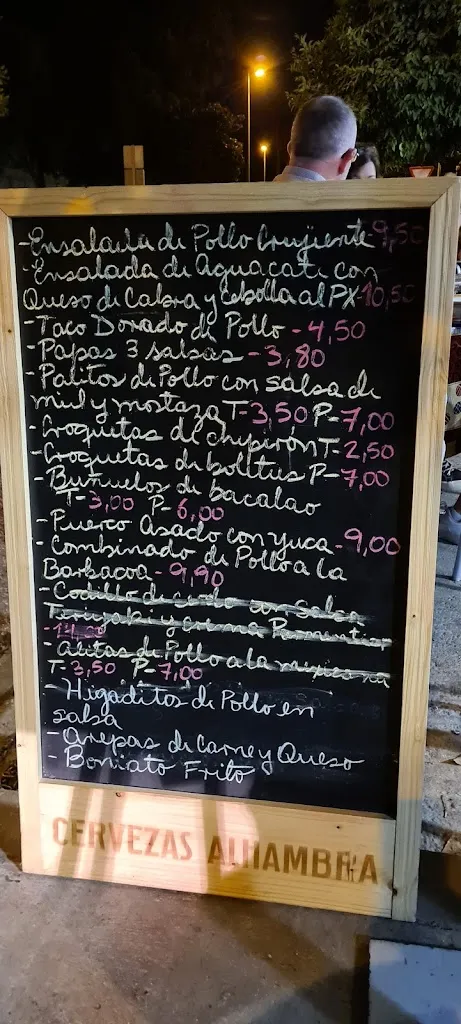 -Ensalada de Pollo Crujiente 9,50
-Ensalada de Aguacate con
Queso de Cabra y Cebolla al PX-10,50
-Taco Dorado de Pollo - 4,50
-Papas 3 salsas - 3,80
-Palitos de Pollo con salsa de
miel y mostaza T-3,50 P-7,00
-Croquetas de chipirón T-2,50
-Croquetas de boletus P-7,00
-Buñuelos de bacalao
T-3,00 P-6,00
-Puerco Asado con yuca - 9,00
-Combinado de Pollo a la
Barbacoa - 9,90
-Codillo de cerdo con Salsa
Teriyaki y crema Parmentier
-Alitas de Pollo a la mexicana
T-3,50 P-7,00
-Higaditos de Pollo en
salsa
-Arepas de Carne y Queso
-Boniato Frito
CERVEZAS ALHAMBRA